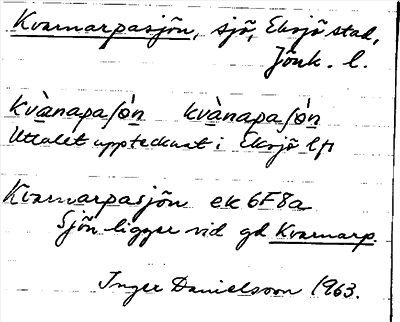 Kvarnarpasjön, sjö, Eksjö stad,
Jönk. l.
kvànapaʃón kvànapaʃón
Uttalet upptecknat i Eksjö lfs
Kvarnarpasjön ek 6F8a
Sjön ligger vid gd Kvarnarp.
Inger Danielsson 1963.